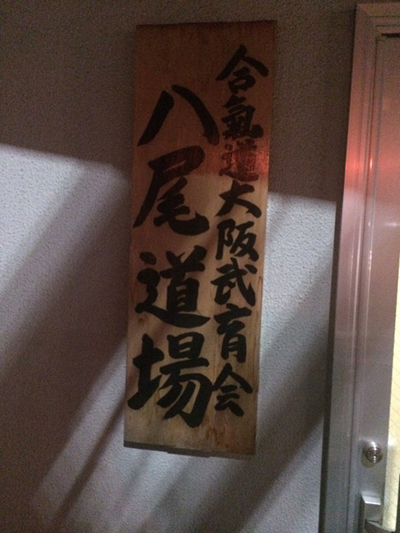 合氣道大阪武育会
八尾道場